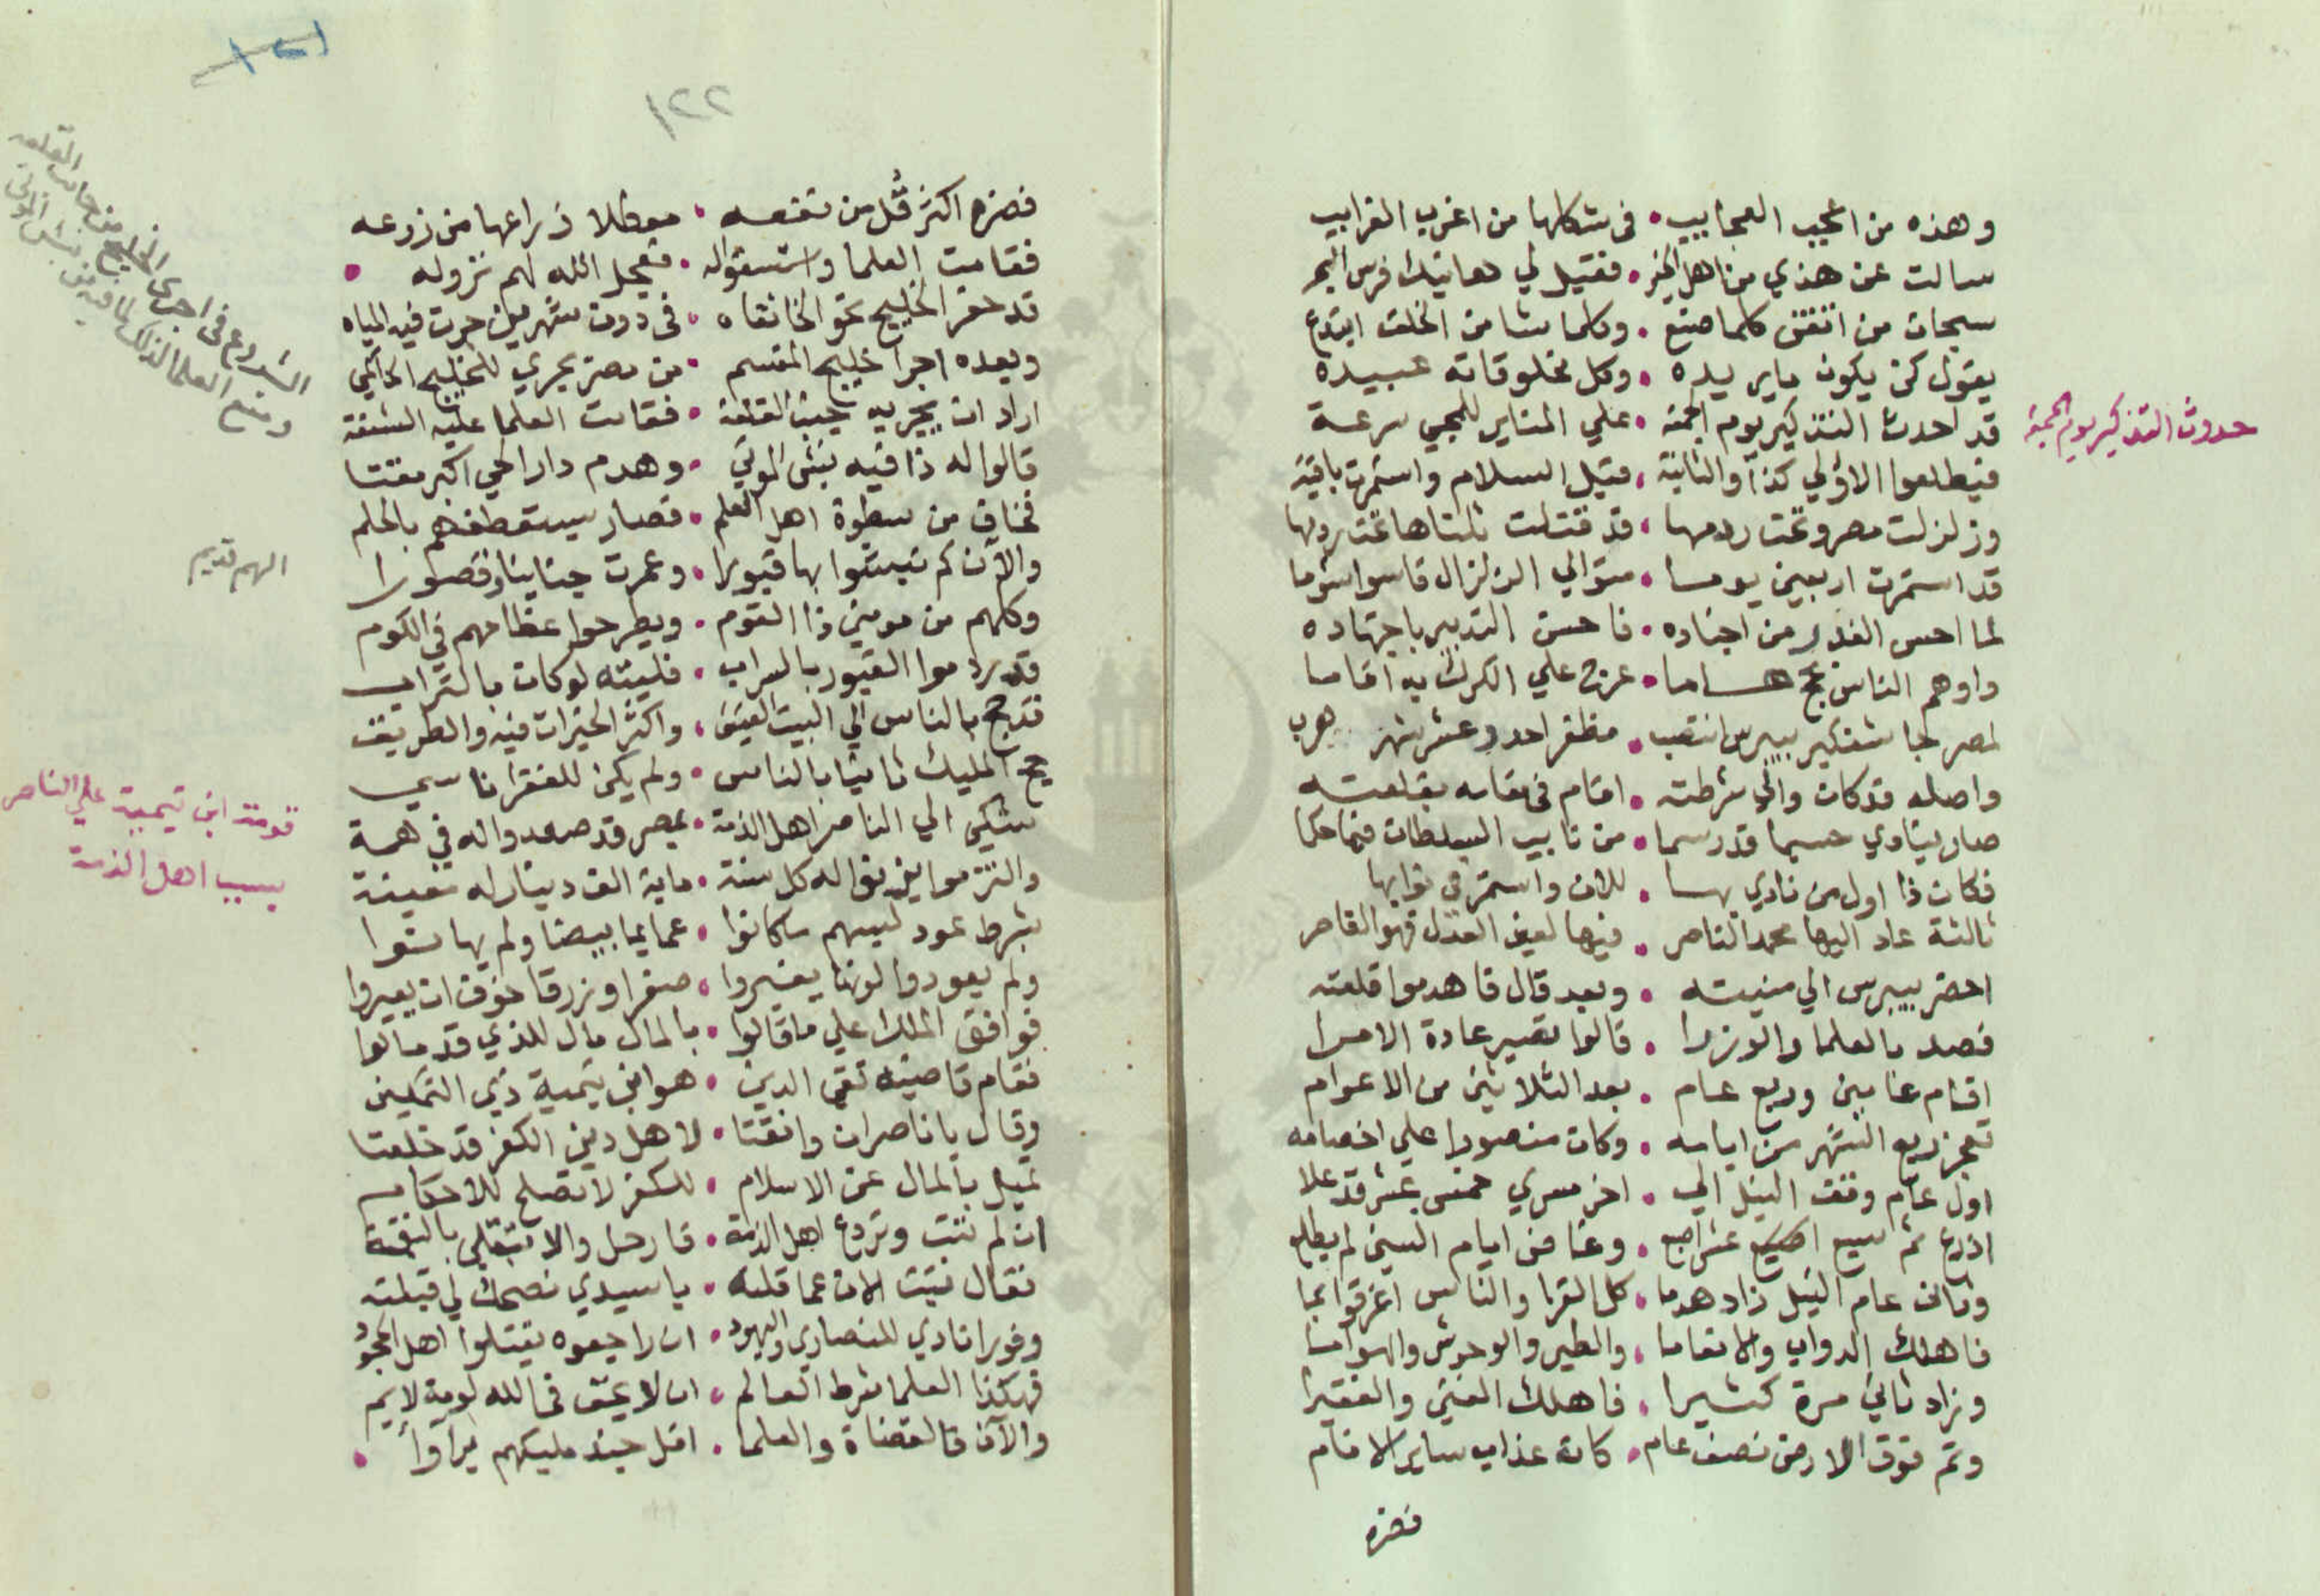 وهذه من اعجب العجايب • فى شكلها من اغرب الغرايب
سالت عن هذي من اهل • فقيل لي هاتيك فرس البحر
سبحان من اتقن كلما صنع • وكلما شا من الخلق ابتدع
يقول كن يكون مايريده • وكل مخلوقاته عبيده
قد احدث التذكير يوم الجمعة • علي المناير للمجي سرعة
حدوث التذكير يوم الجمعة
فيطلعوا الاولي كذا والثانية • قبل السلام واستمرت باقية
وزلزلت مصر وتحت ردمها • قد قتلت ثلثاها تحت ردمها
قد استمرت اربعين يوما • متوالي الزلزال قاسوا شوما
لما احس الغدر من اجناده • فاحسن التدبير باجتهاده
واوهم الناس بحج هاما • عزم علي الكرك به اقاما
لمصر جاشنكير بيبرس انتصب • مظفر احدي عشر شهر هرب
واصله قد كان والي شرطته • اقام فى مقامه بقلعته
صار ينادي حسبما قد رسما • من نايب السلطان فيما حكما
فكان ذا اول من نادي بها • للان واستمر فى نوابها
ثالثة عاد اليها محمد الناصر • فيها لعين العدل فهو القاصر
احضر بيبرس الي منيته • وبعد قال قاهدموا قلعته
فصد بالعلما والوزرا • قالوا تصير عادة الامرا
اقام عامين وربع عام • بعد الثلاثين من الاعوام
تعجز ربع الشهر من ايامه • وكان منصورا علي اخصامه
اول عام وقف النيل الي • اخر مسري خمس عشر قد علا
اذرع ثم سبع اصبع • وعنا من ايام السنين لم يطلع
وثانى عام النيل زاد هدما • كل القرا والناس اغرقوا بما
فاهلك الدواب والانعاما • والطير والوحوش والهواما
وزاد ثاني مرة كثيرا • فاهلك الغني والفقيرا
وتم فوق الارض نصف عام • كانه عذاب ساير الانام
فضره
١٢١
١٢٢
فضره اكثر قل من نفعه • معطلا ذراعها من زرعه
فقامت العلما واستسقوا له • فعجل الله لهم نزوله •
قد حفر الخليج نحو الخانقاه • فى دون شهرين جرت فيه المياه
وبعده اجرا خليج المقسم • من مصر يجري للخليج الحاكمي
الشروع فى اجرى الخليج من جانب القلعه
ومنع العلما لذلك لما فيه من نبش الموتى
اراد ان يجريه جنب القلعة • فقامت العلما عليه الشنعة
قالوا له ذا فيه نبش الموتي • وهدم دار الحي اكبر مقتا
فخاف من سطوة اهل العلم • فصار يستعطفهم بالحلم
والآن كم نبشوا بها قبورا • وعمرت جناينا وقصورا
الهم قديم
وكلهم من مومنين ذا القوم • ويطرحوا عظامهم في الكوم
قد ردموا القبور بالسراب • فليته لو كان بالتراب
قد حج بالناس الي البيت العتيق • واكثر الخيرات فيه والطريق
حج المليك ثانيا بالناس • ولم يكن للفقرا ناسي
شكي الي الناصر اهل الذمة • بمصر قد صعدوا له في همة
قومة ابن تيمية علي الناصر
بسبب اهل الذمة
والتزموا يزنوا له كل سنة • ماية الف دينار له معينة
بشرط عود لبسهم ما كانوا • عمايما بيضا ولم يهانوا
ولم يعودوا لونها يغيروا • صفرا وزرقا خوف ان يعيروا
فوافق الملك علي ما قالوا • بالمال مال للذي قد مالوا
فقام قاضيه تقي الدين • هو ابن تيمية ذي التمكين
وقال يا ناصر ان وافقتا • لاهل دين الكفر قد خلعتا
تميل بالمال عن الاسلام • للكفر لا تصلح للاحكام
ان لم تتب وتردع اهل الذمة • فارحل والا تبتلي بالنقمة
فقال تبت الان عما قلته • يا سيدي نصحك لي قبلته
وفورا نادي للنصاري واليهود • ان راجعوه يقتلوا اهل الجحود
فهكذا العلما شرط العالم • ان لا يخف فى الله لومة لايم
والآن فالقضاة والعلما • اقل جند مليكهم •